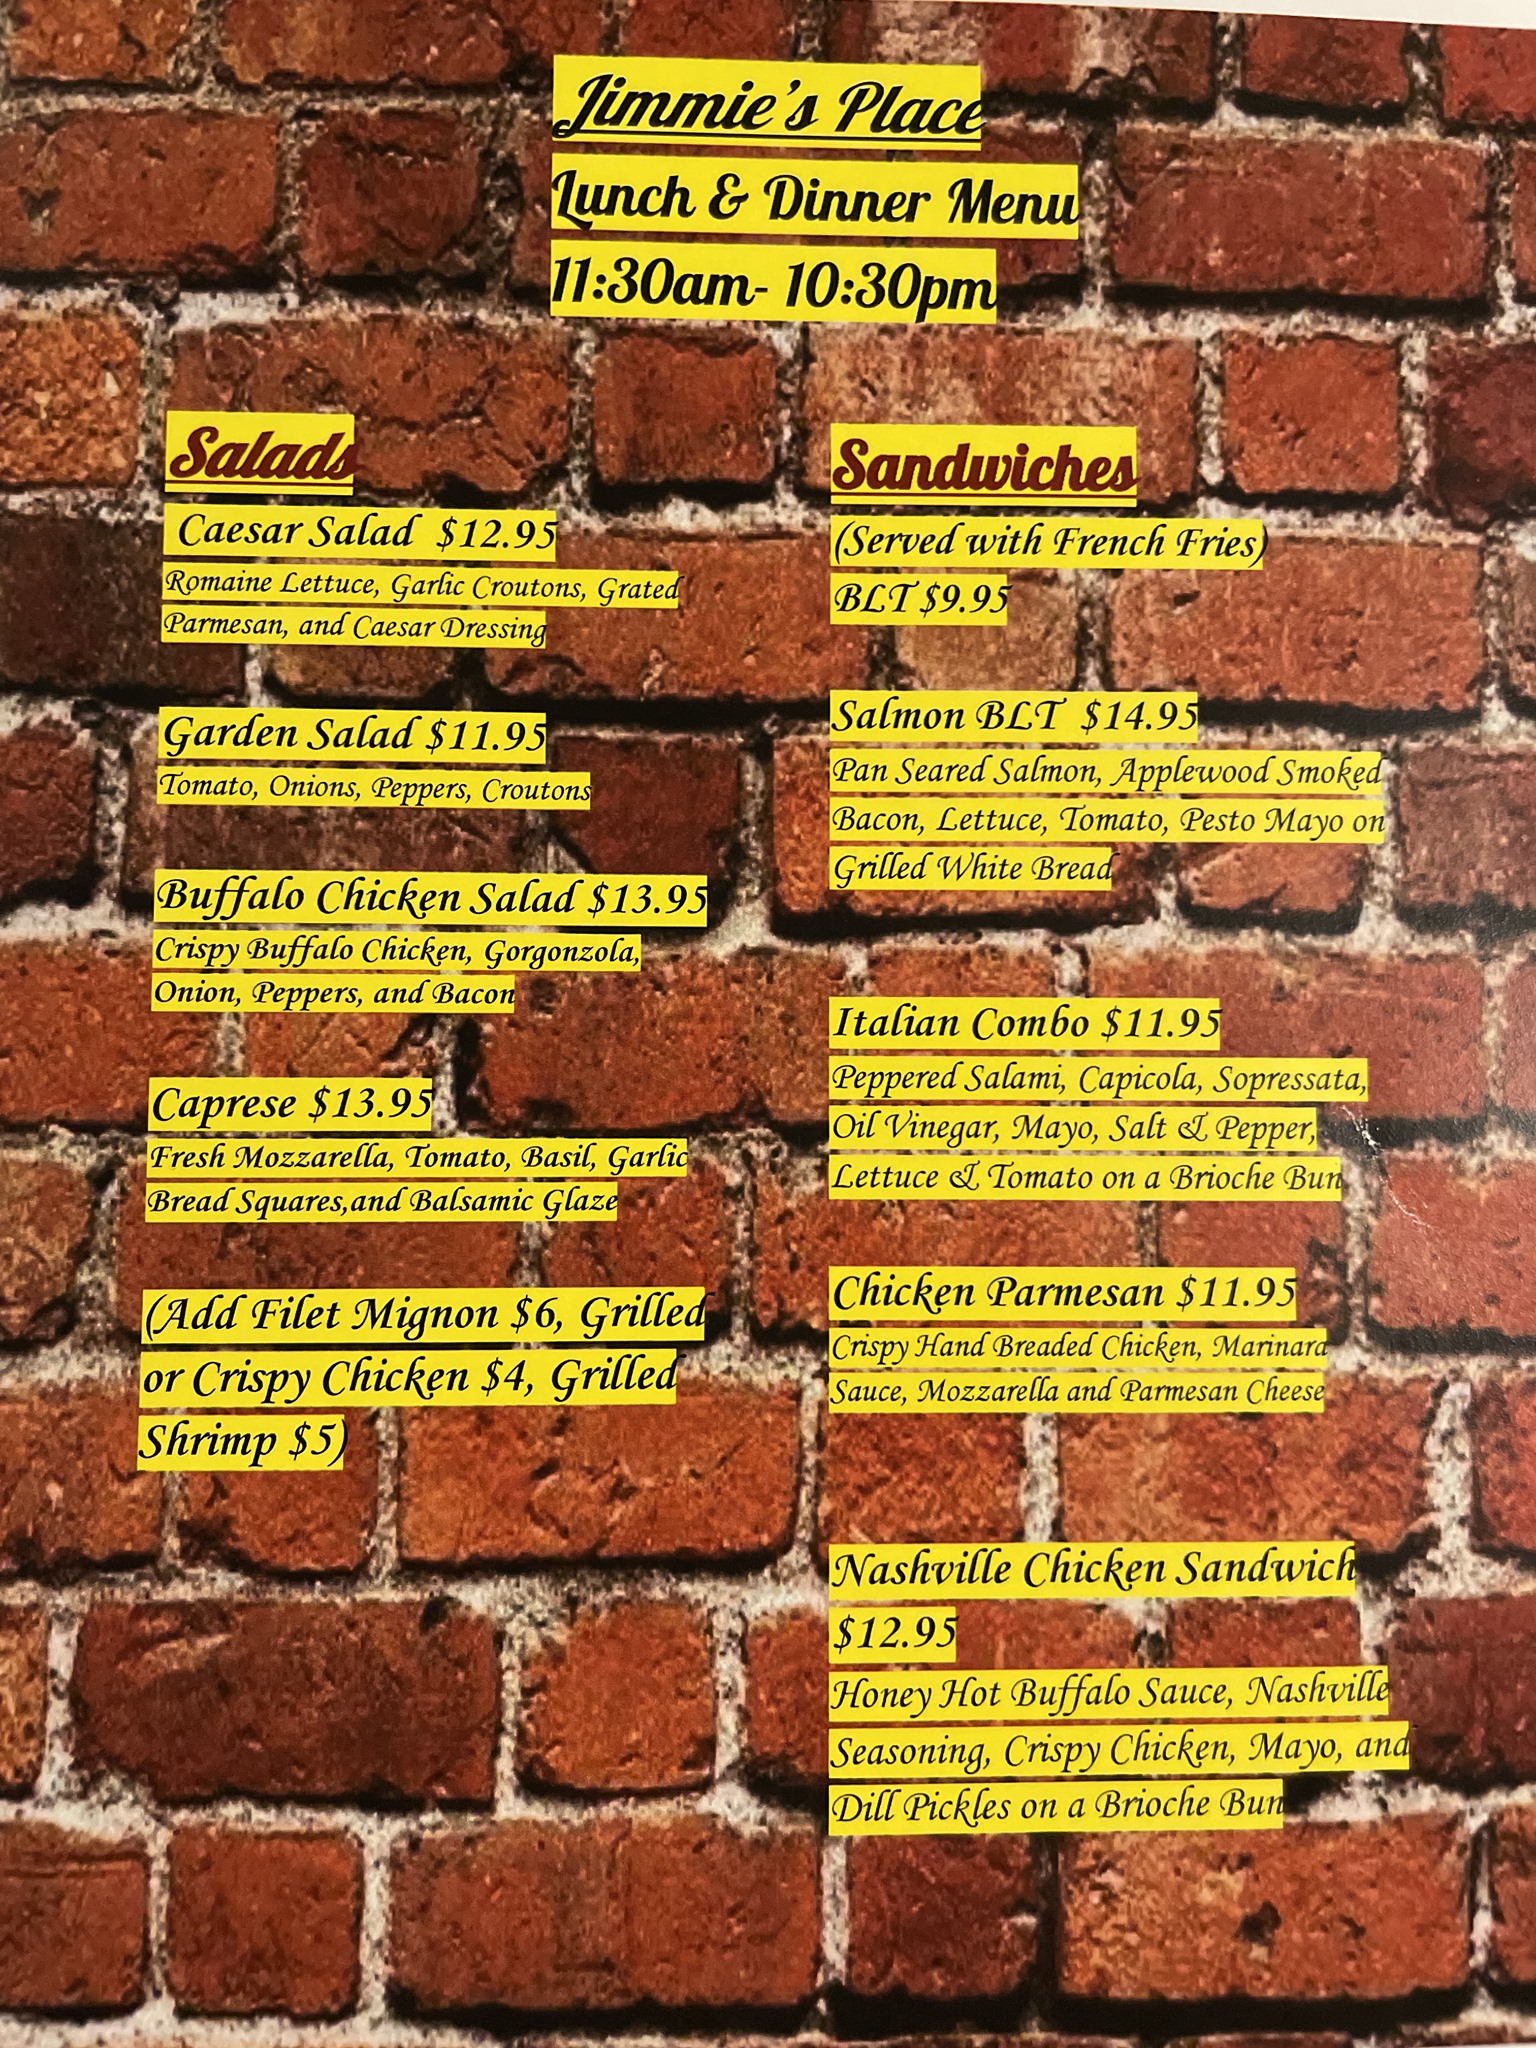 Jimmie's Place
Lunch & Dinner Menu
11:30am- 10:30pm
Salads
Caesar Salad $12.95
Romaine Lettuce, Garlic Croutons, Grated
Parmesan, and Caesar Dressing
Garden Salad $11.95
Tomato, Onions, Peppers, Croutons
Buffalo Chicken Salad $13.95
Crispy Buffalo Chicken, Gorgonzola,
Onion, Peppers, and Bacon
Caprese $13.95
Fresh Mozzarella, Tomato, Basil, Garlic
Bread Squares,and Balsamic Glaze
(Add Filet Mignon $6, Grilled
or Crispy Chicken $4, Grilled
Shrimp $5)
Sandwiches
(Served with French Fries)
BLT $9.95
Salmon BLT $14.95
Pan Seared Salmon, Applewood Smoked
Bacon, Lettuce, Tomato, Pesto Mayo on
Grilled White Bread
Italian Combo $11.95
Peppered Salami, Capicola, Sopressata,
Oil Vinegar, Mayo, Salt & Pepper,
Lettuce & Tomato on a Brioche Bun
Chicken Parmesan $11.95
Crispy Hand Breaded Chicken, Marinara
Sauce, Mozzarella and Parmesan Cheese
Nashville Chicken Sandwich
$12.95
Honey Hot Buffalo Sauce, Nashville
Seasoning, Crispy Chicken, Mayo, and
Dill Pickles on a Brioche Bun